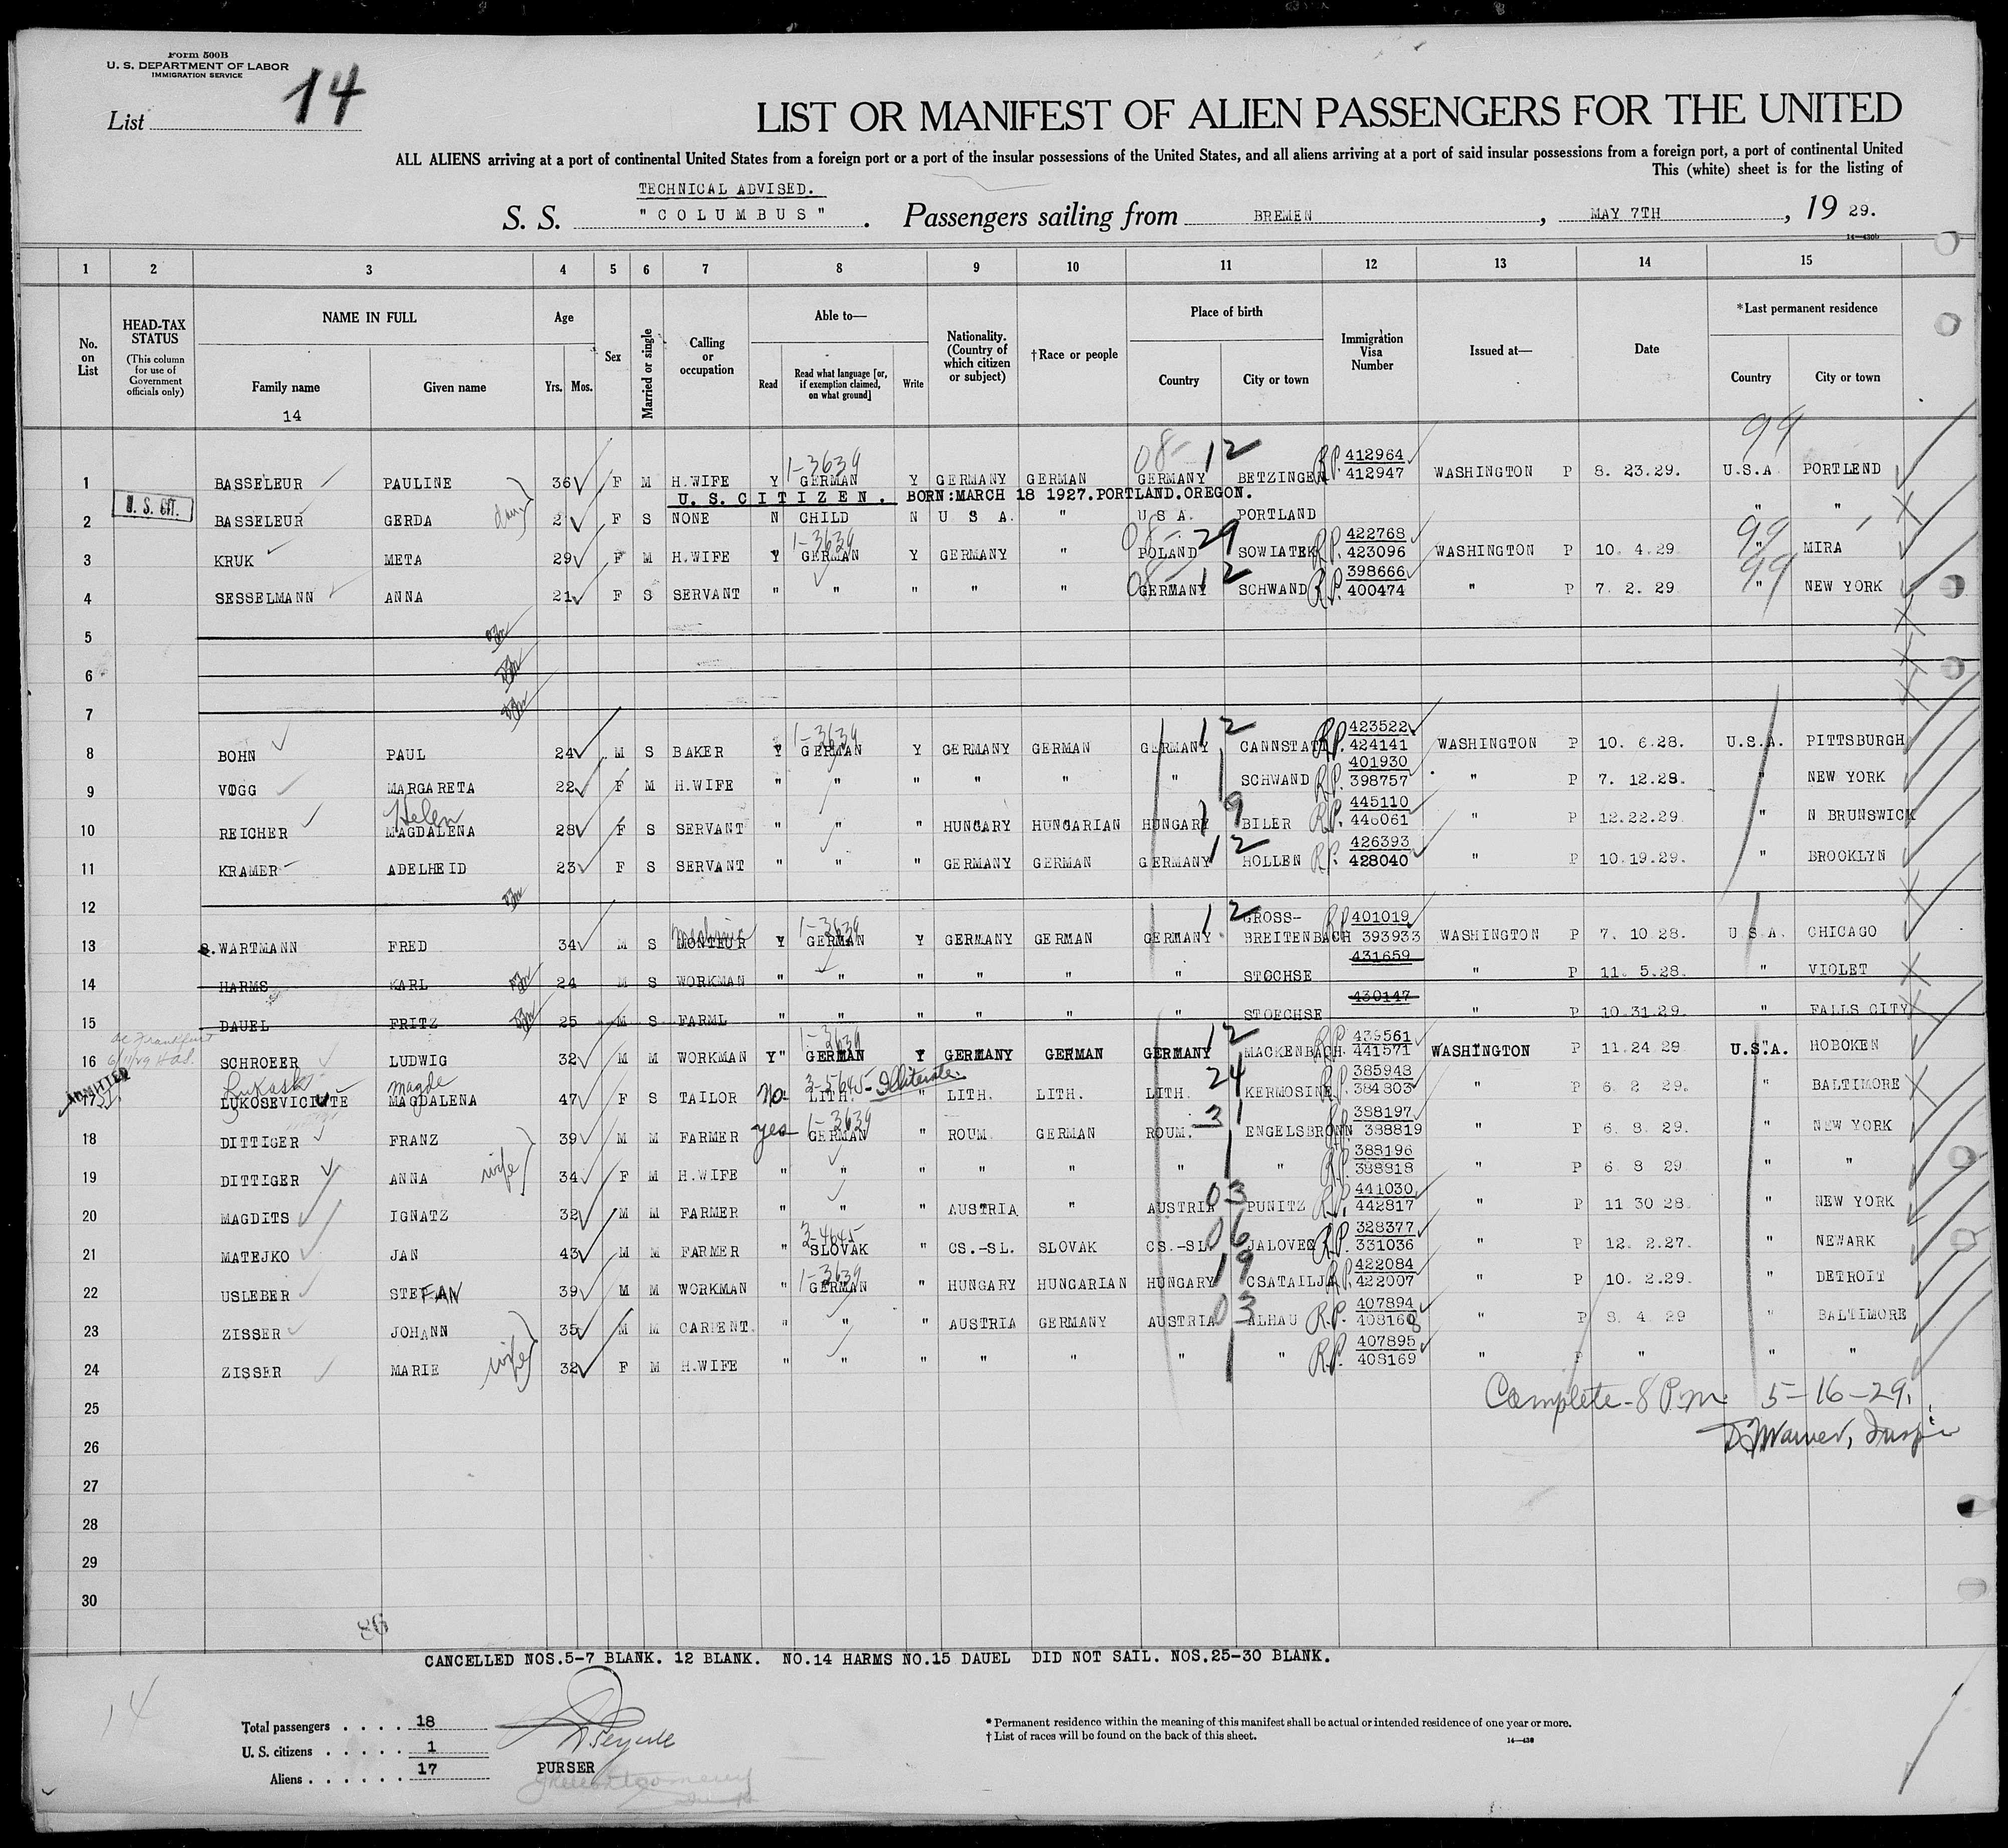 Form 500B
U. S. DEPARTMENT OF LABOR
IMMIGRATION SERVICE
List 14
LIST OR MANIFEST OF ALIEN PASSENGERS FOR THE UNITED
ALL ALIENS arriving at a port of continental United States from a foreign port or a port of the insular possessions of the United States, and all aliens arriving at a port of said insular possessions from a foreign port, a port of continental United
This (white) sheet is for the listing of
TECHNICAL ADVISED.
S. S. "COLUMBUS". Passengers sailing from BREMEN, MAY 7TH, 19 29.
14—430b
1 2 3 4 5 6 7 8 9 10 11 12 13 14 15
No. on List
HEAD-TAX STATUS (This column for use of Government officials only)
NAME IN FULL
Family name Given name
14
Age Yrs. Mos.
Sex
Married or single
Calling or occupation
Able to—
Read Read what language [or, if exemption claimed, on what ground] Write
Nationality. (Country of which citizen or subject)
†Race or people
Place of birth
Country City or town
Immigration Visa Number
Issued at—
Date
*Last permanent residence
Country City or town
99
1-3639 08- 12 RP 412964
1 BASSELEUR PAULINE 36 F M H.WIFE Y GERMAN Y GERMANY GERMAN GERMANY BETZINGEN 412947 WASHINGTON P 8. 23.29. U.S.A. PORTLEND
U. S. CIT.
U. S. CITIZEN. BORN:MARCH 18 1927.PORTLAND.OREGON.
2 BASSELEUR GERDA 2 F S NONE N CHILD N U S A. " U S A. PORTLAND " "
1-3639 08- 29 422768 99
3 KRUK META 29 F M H.WIFE Y GERMAN Y GERMANY " POLAND SOWIATEK R.P. 423096 WASHINGTON P 10. 4.29. " MIRA
08 12 398666 99
4 SESSELMANN ANNA 21 F S SERVANT " " " " " GERMANY SCHWAND R.P. 400474 " P 7. 2. 29 " NEW YORK
5
6
7
1-3639 12 423522
8 BOHN PAUL 24 M S BAKER Y GERMAN Y GERMANY GERMAN GERMANY CANNSTATT R.P. 424141 WASHINGTON P 10. 6.28. U.S.A. PITTSBURGH
401930
9 VOGG MARGARETA 22 F M H.WIFE " " " " " " SCHWAND R.P. 398757 " P 7. 12.28. " NEW YORK
Helen 19 445110
10 REICHER MAGDALENA 28 F S SERVANT " " " HUNGARY HUNGARIAN HUNGARY BILER R.P. 446061 " P 12.22.29. " N BRUNSWICK
12 426393
11 KRAMER ADELHEID 23 F S SERVANT " " " GERMANY GERMAN GERMANY HOLLEN R.P. 428040 " P 10.19.29. " BROOKLYN
12
1-3639 12 GROSS- RP 401019
13 WARTMANN FRED 34 M S MONTEUR Y GERMAN Y GERMANY GERMAN GERMANY BREITENBACH 393933 WASHINGTON P 7. 10.28. U S A. CHICAGO
431659
14 HARMS KARL 24 M S WORKMAN " " " " " " STOCHSE " P 11. 5.28. " VIOLET
430147
15 DAUEL FRITZ 25 M S FARML " " " " " " STOECHSE " P 10.31.29. " FALLS CITY
1-3639 12 R.P. 439561
16 SCHROEER LUDWIG 32 M M WORKMAN Y" GERMAN Y GERMANY GERMAN GERMANY MACKENBACH 441571 WASHINGTON P 11.24 29 U.S.A. HOBOKEN
ADMITTED Magde 3-5645- Illiterate. 24 385948
17 LUKOSEVICIUTE MAGDALENA 47 F S TAILOR No LITH. " LITH. LITH. LITH. KERMOSINE R.P. 384803 " P 6. 2 29. " BALTIMORE
1-3639 31 388197
18 DITTIGER FRANZ 39 M M FARMER yes GERMAN " ROUM. GERMAN ROUM. ENGELSBRONN 388819 " P 6. 8. 29. " NEW YORK
388196
19 DITTIGER ANNA wife 34 F M H.WIFE " " " " " " " R.P. 388818 " P 6. 8 29 " "
03 441030
20 MAGDITS IGNATZ 32 M M FARMER " " " AUSTRIA " AUSTRIA PUNITZ R.P. 442817 " P 11 30 28. " NEW YORK
3-4645 06 328377
21 MATEJKO JAN 43 M M FARMER " SLOVAK " CS.-SL. SLOVAK CS.-SL JALOVEC R.P. 331036 " P 12. 2.27. " NEWARK
1-3639 19 422084
22 USLEBER STEFAN 39 M M WORKMAN " GERMAN " HUNGARY HUNGARIAN HUNGARY CSATAILJA R.P. 422007 " P 10. 2.29. " DETROIT
03 407894
23 ZISSER JOHANN 35 M M CARPENT. " " " AUSTRIA GERMANY AUSTRIA ALHAU R.P. 408168 " P 8. 4. 29 " BALTIMORE
407895
24 ZISSER MARIE wife 32 F M H.WIFE " " " " " " " R.P. 408169 " P " " "
25 Complete - 8 P.m. 5-16-29.
26
27
28
29
30
CANCELLED NOS.5-7 BLANK. 12 BLANK. NO.14 HARMS NO.15 DAUEL DID NOT SAIL. NOS.25-30 BLANK.
14
Total passengers . . . . 18
U. S. citizens . . . . . 1
Aliens . . . . . . 17
PURSER
* Permanent residence within the meaning of this manifest shall be actual or intended residence of one year or more.
† List of races will be found on the back of this sheet.
14—430